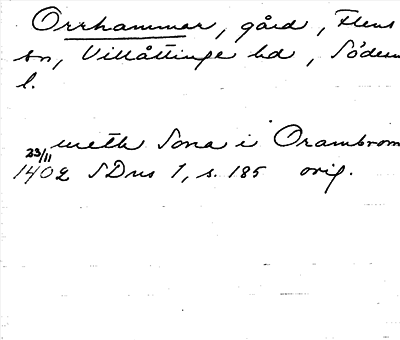 Orrhammar, gård, Flens
sn, Villåttinge hd, Söderm
l.
meth Sona i Orambrom
23/11
1402 SDns 1, s. 185 orig.